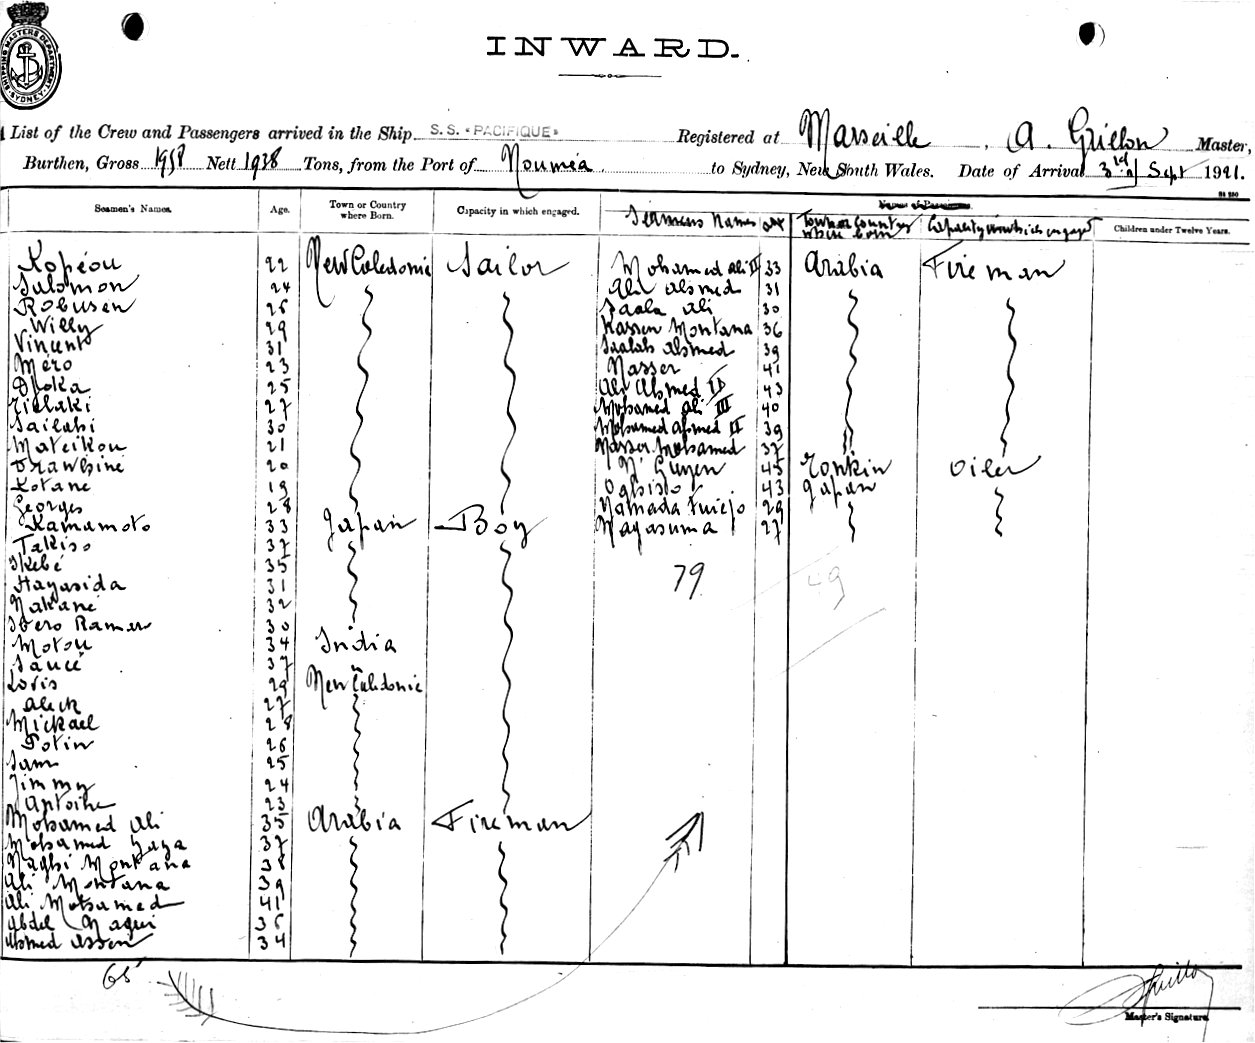 SHIPPING MASTERS DEPARTMENT SYDNEY
INWARD.
List of the Crew and Passengers arrived in the Ship S.S. "PACIFIQUE" Registered at Marseille, A. Grillon Master,
Burthen, Gross 1958 Nett 1938 Tons, from the Port of Nouméa to Sydney, New South Wales. Date of Arrival 3rd of Sept 1921.
Seamen's Names. Age. Town or Country where Born. Capacity in which engaged. Seamens Names age Town or Country where born Capacity in which engaged Children under Twelve Years.
Kopéou 22 New Caledonie Sailor Mohamed ali II 33 Arabia Fireman
Salomon 24 Ali ahmed 31
Robusen 26 Saala ali 30
Willy 29 Kassen Montana 36
Vincent 31 Saalah ahmed 39
Méro 23 Nasser 41
Djoka 25 Ali Ahmed II 43
Zielaki 27 Mohamed ali III 40
Sailahi 30 Mohamed ahmed II 39
Mateikou 21 Nasser Mohamed 37
Drawhine 20 N'Guyen 45 Tonkin Oiler
Kotane 19 43 Japan
Georges 28 Yamada 29
Kamamoto 33 Japan Boy Nagasuma 27
Takiso 37
Ikebé 35
Hayasida 31
Nakané 32
Ramen 30
Motou 34 India
Saucé 37 "
Loris 29 New Caledonie
Alick 27
Mickael 28
Potin 26
Sam 25
Jimmy 24
Antoine 23
Mohamed Ali 35 Arabia Fireman
Mohamed Yaya 37
Naghi Montana 38
Ali Montana 39
Ali Mohamed 41
Abdel Naqui 36
Ahmed Assen 34
79
49
65
Master's Signature.